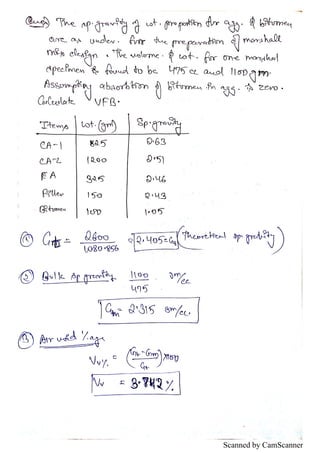 Ques) The sp. gravity & wt. proportion for agg. & bitumen
are as under for the preparation of marshall
mix design. The volume & wt. for one marshal
specimen is found to be 475 cc and 1100 gm
Assumption absorbtion of bitumen in agg. is zero.
Calculate VFB.
Items Wt. (gm) Sp. gravity
CA-1 825 2.63
CA-2 1200 2.51
FA 325 2.46
Filler 150 2.43
Bitumen 100 1.05
① Gt = 2600 / 1080.856 = 2.405 = Gt (Theoretical sp gravity)
② Bulk sp gravity 1100 / 475 gm/cc
Gm = 2.315 gm/cc.
③ Air void % age
Vv% = (Gt - Gm / Gt) × 100
Vv = 3.742 %
Scanned by CamScanner